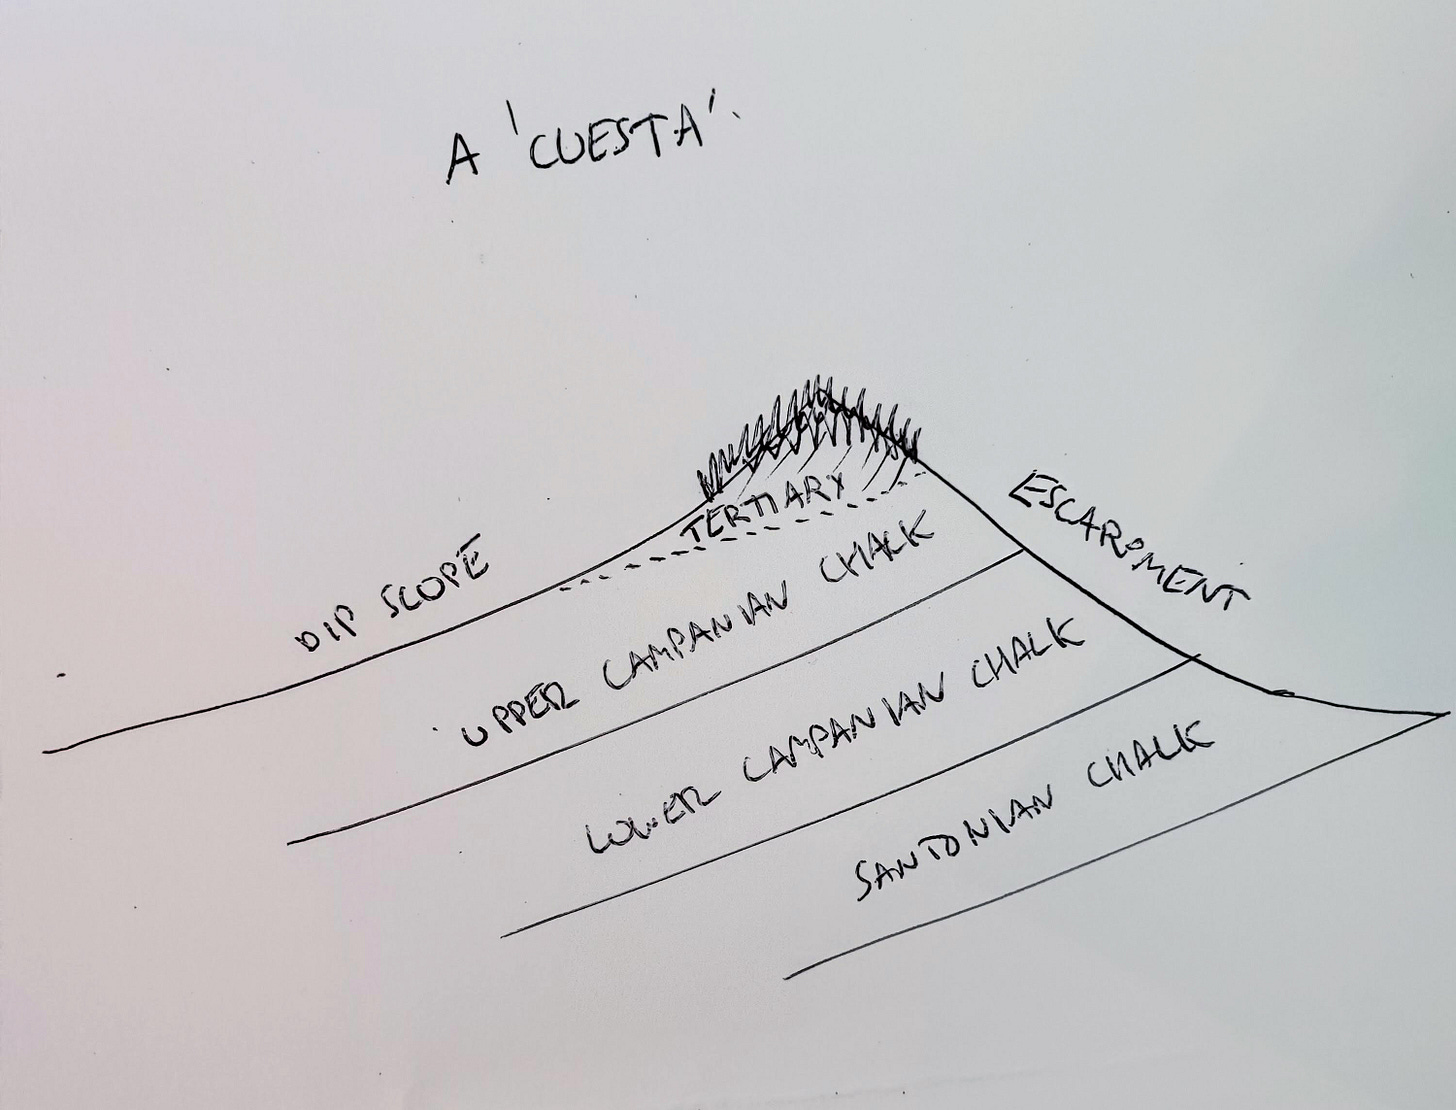 A 'CUESTA'.
DIP SLOPE
ESCARPMENT
TERTIARY
UPPER CAMPANIAN CHALK
LOWER CAMPANIAN CHALK
SANTONIAN CHALK